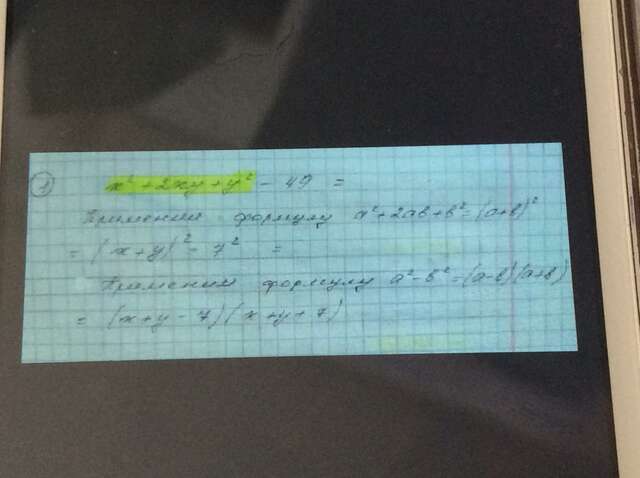 1) x² + 2xy + y² - 49 =
Применим формулу a²+2ab+b²=(a+b)²
= (x+y)² - 7² =
Применим формулу a²-b²=(a-b)(a+b)
= (x+y-7)(x+y+7)